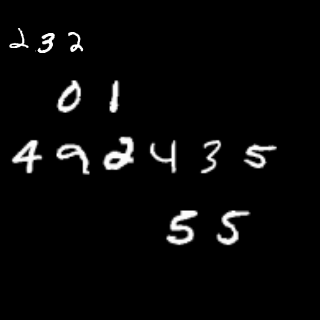 232
01
492435
55